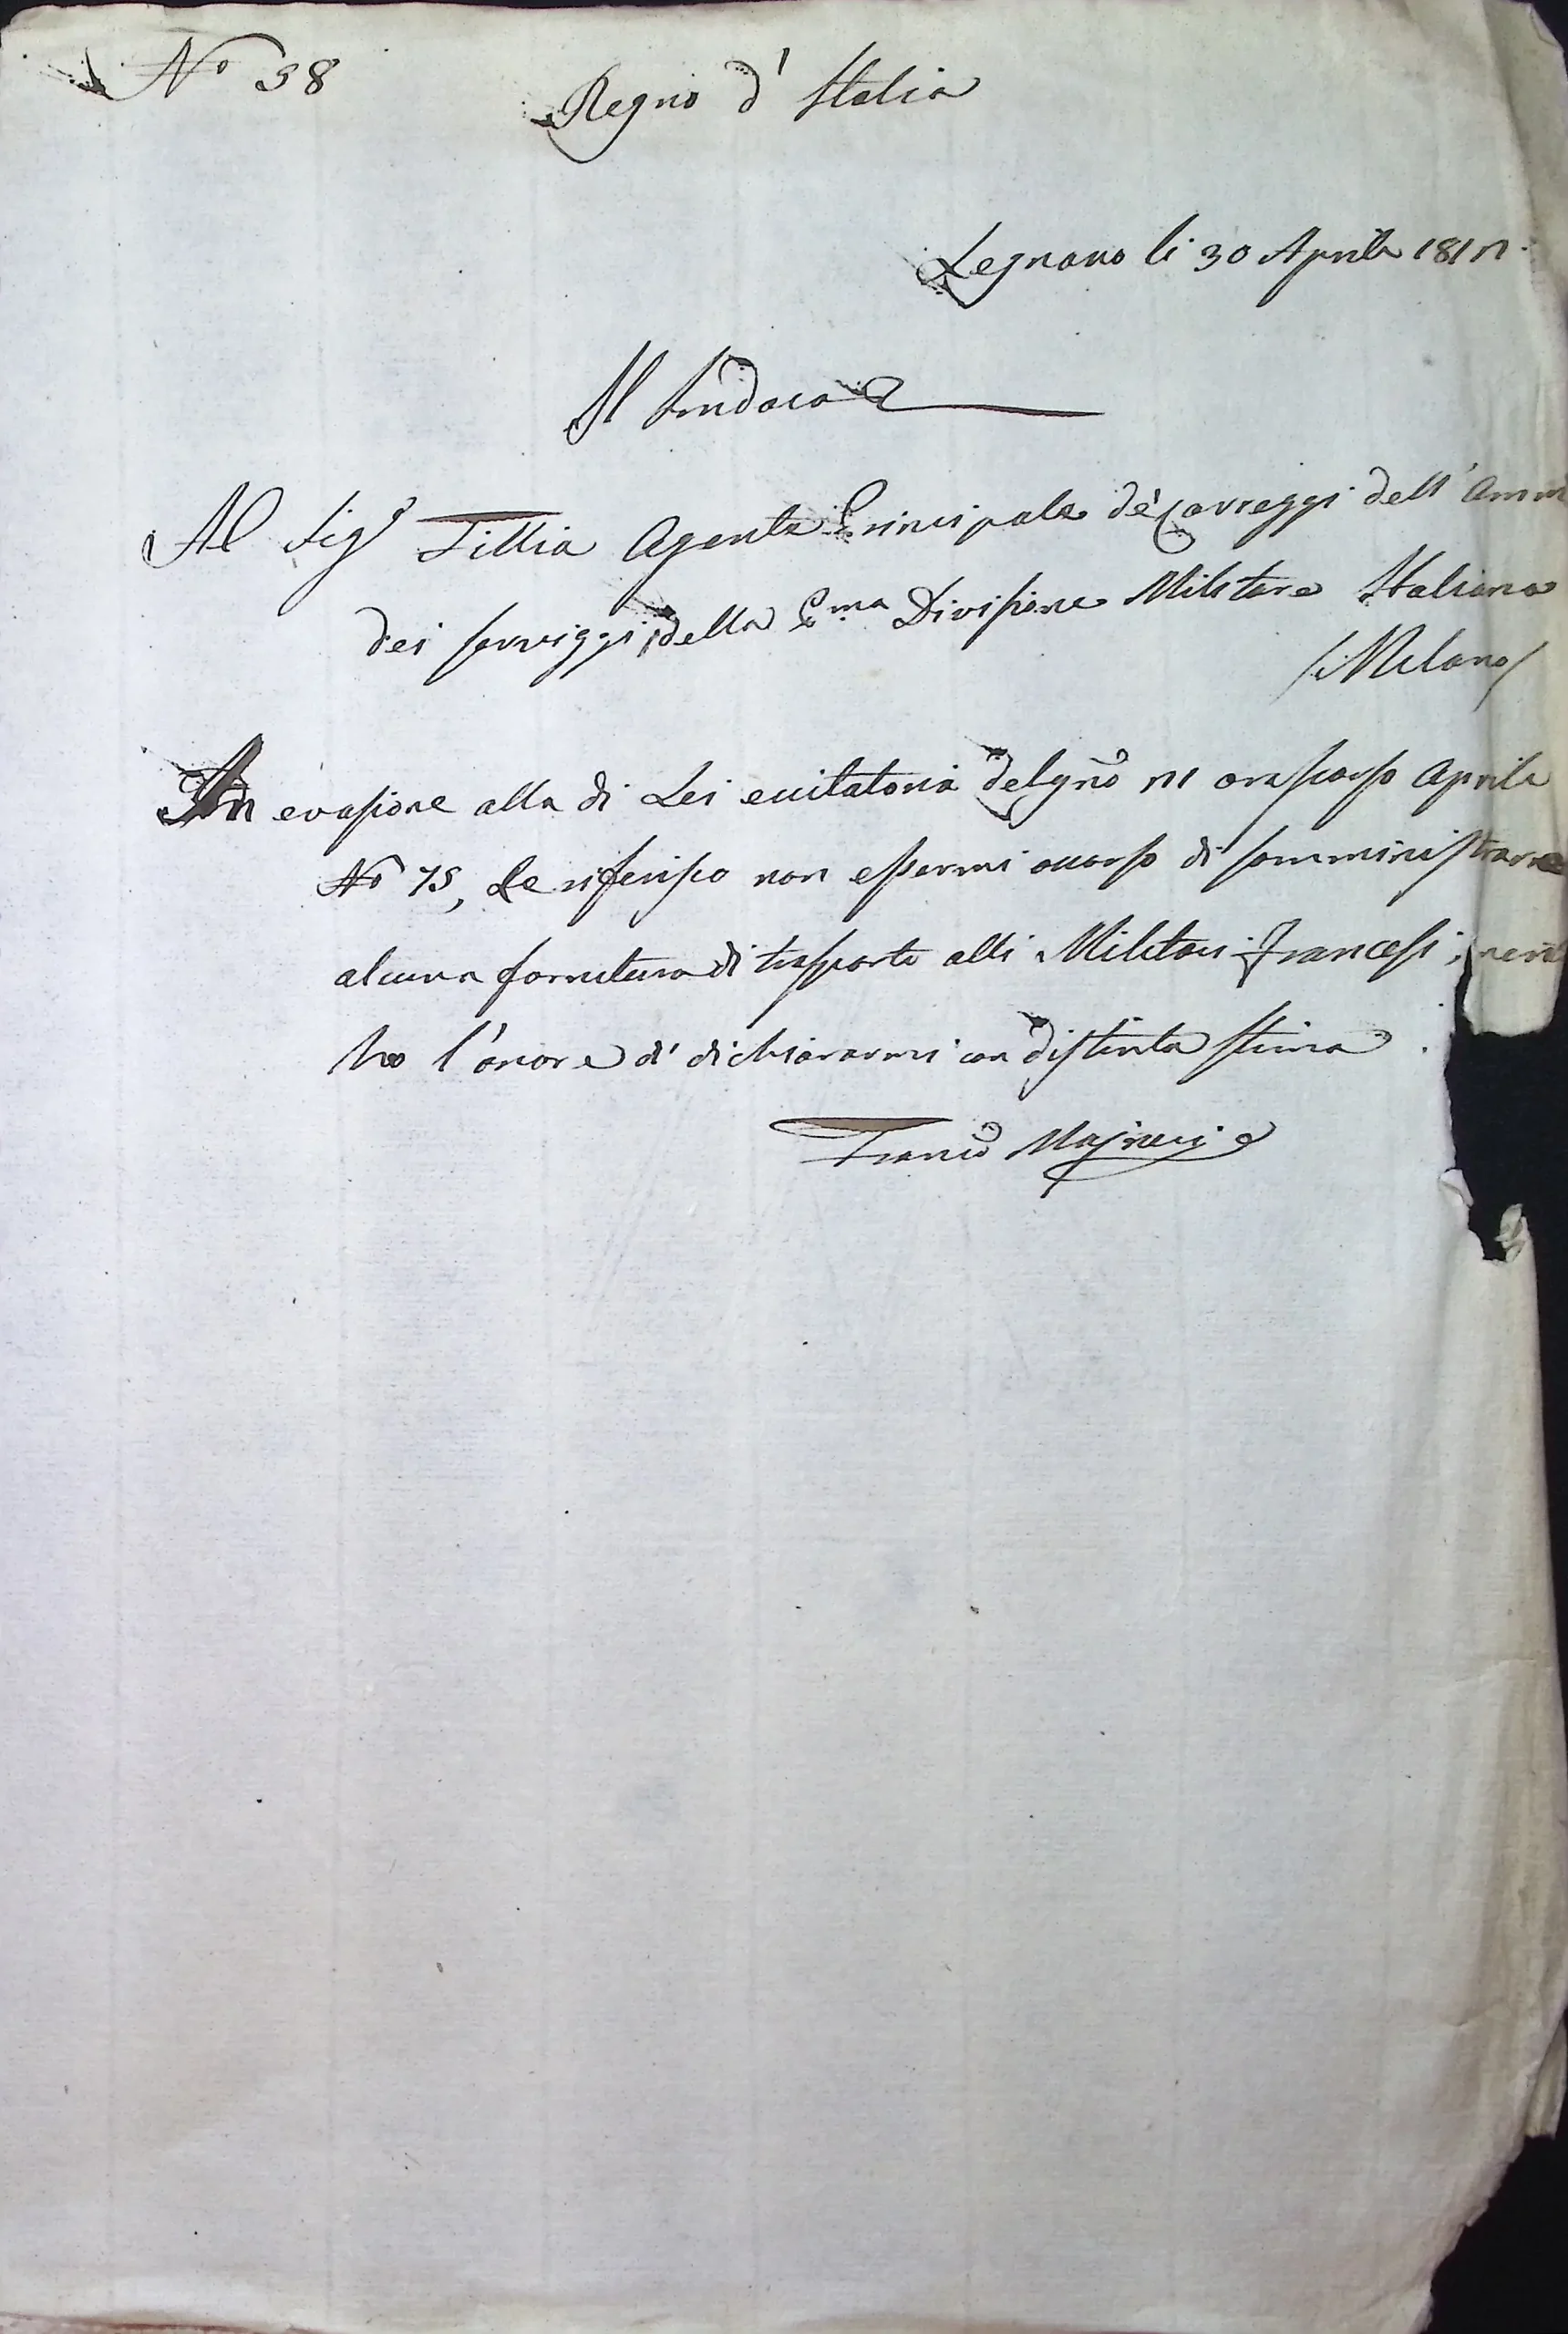 N.º 38
Regno d' Italia
Legnano li 30 Aprile 181
Il Sindaco
Al Sigr Tillia Agente Principale de' Carreggi dell' Amm
dei serviggi della Pma Divisione Militare Italiana
/Milano/
In evasione alla di Lei eccitatoria del gno orascorso Aprile
No 75, Le riferisco non essermi occorso di somministrare
alcuna fornitura di trasporti alli Militari Francesi,
ho l'onore di dichiararmi con distinta stima.
Franco